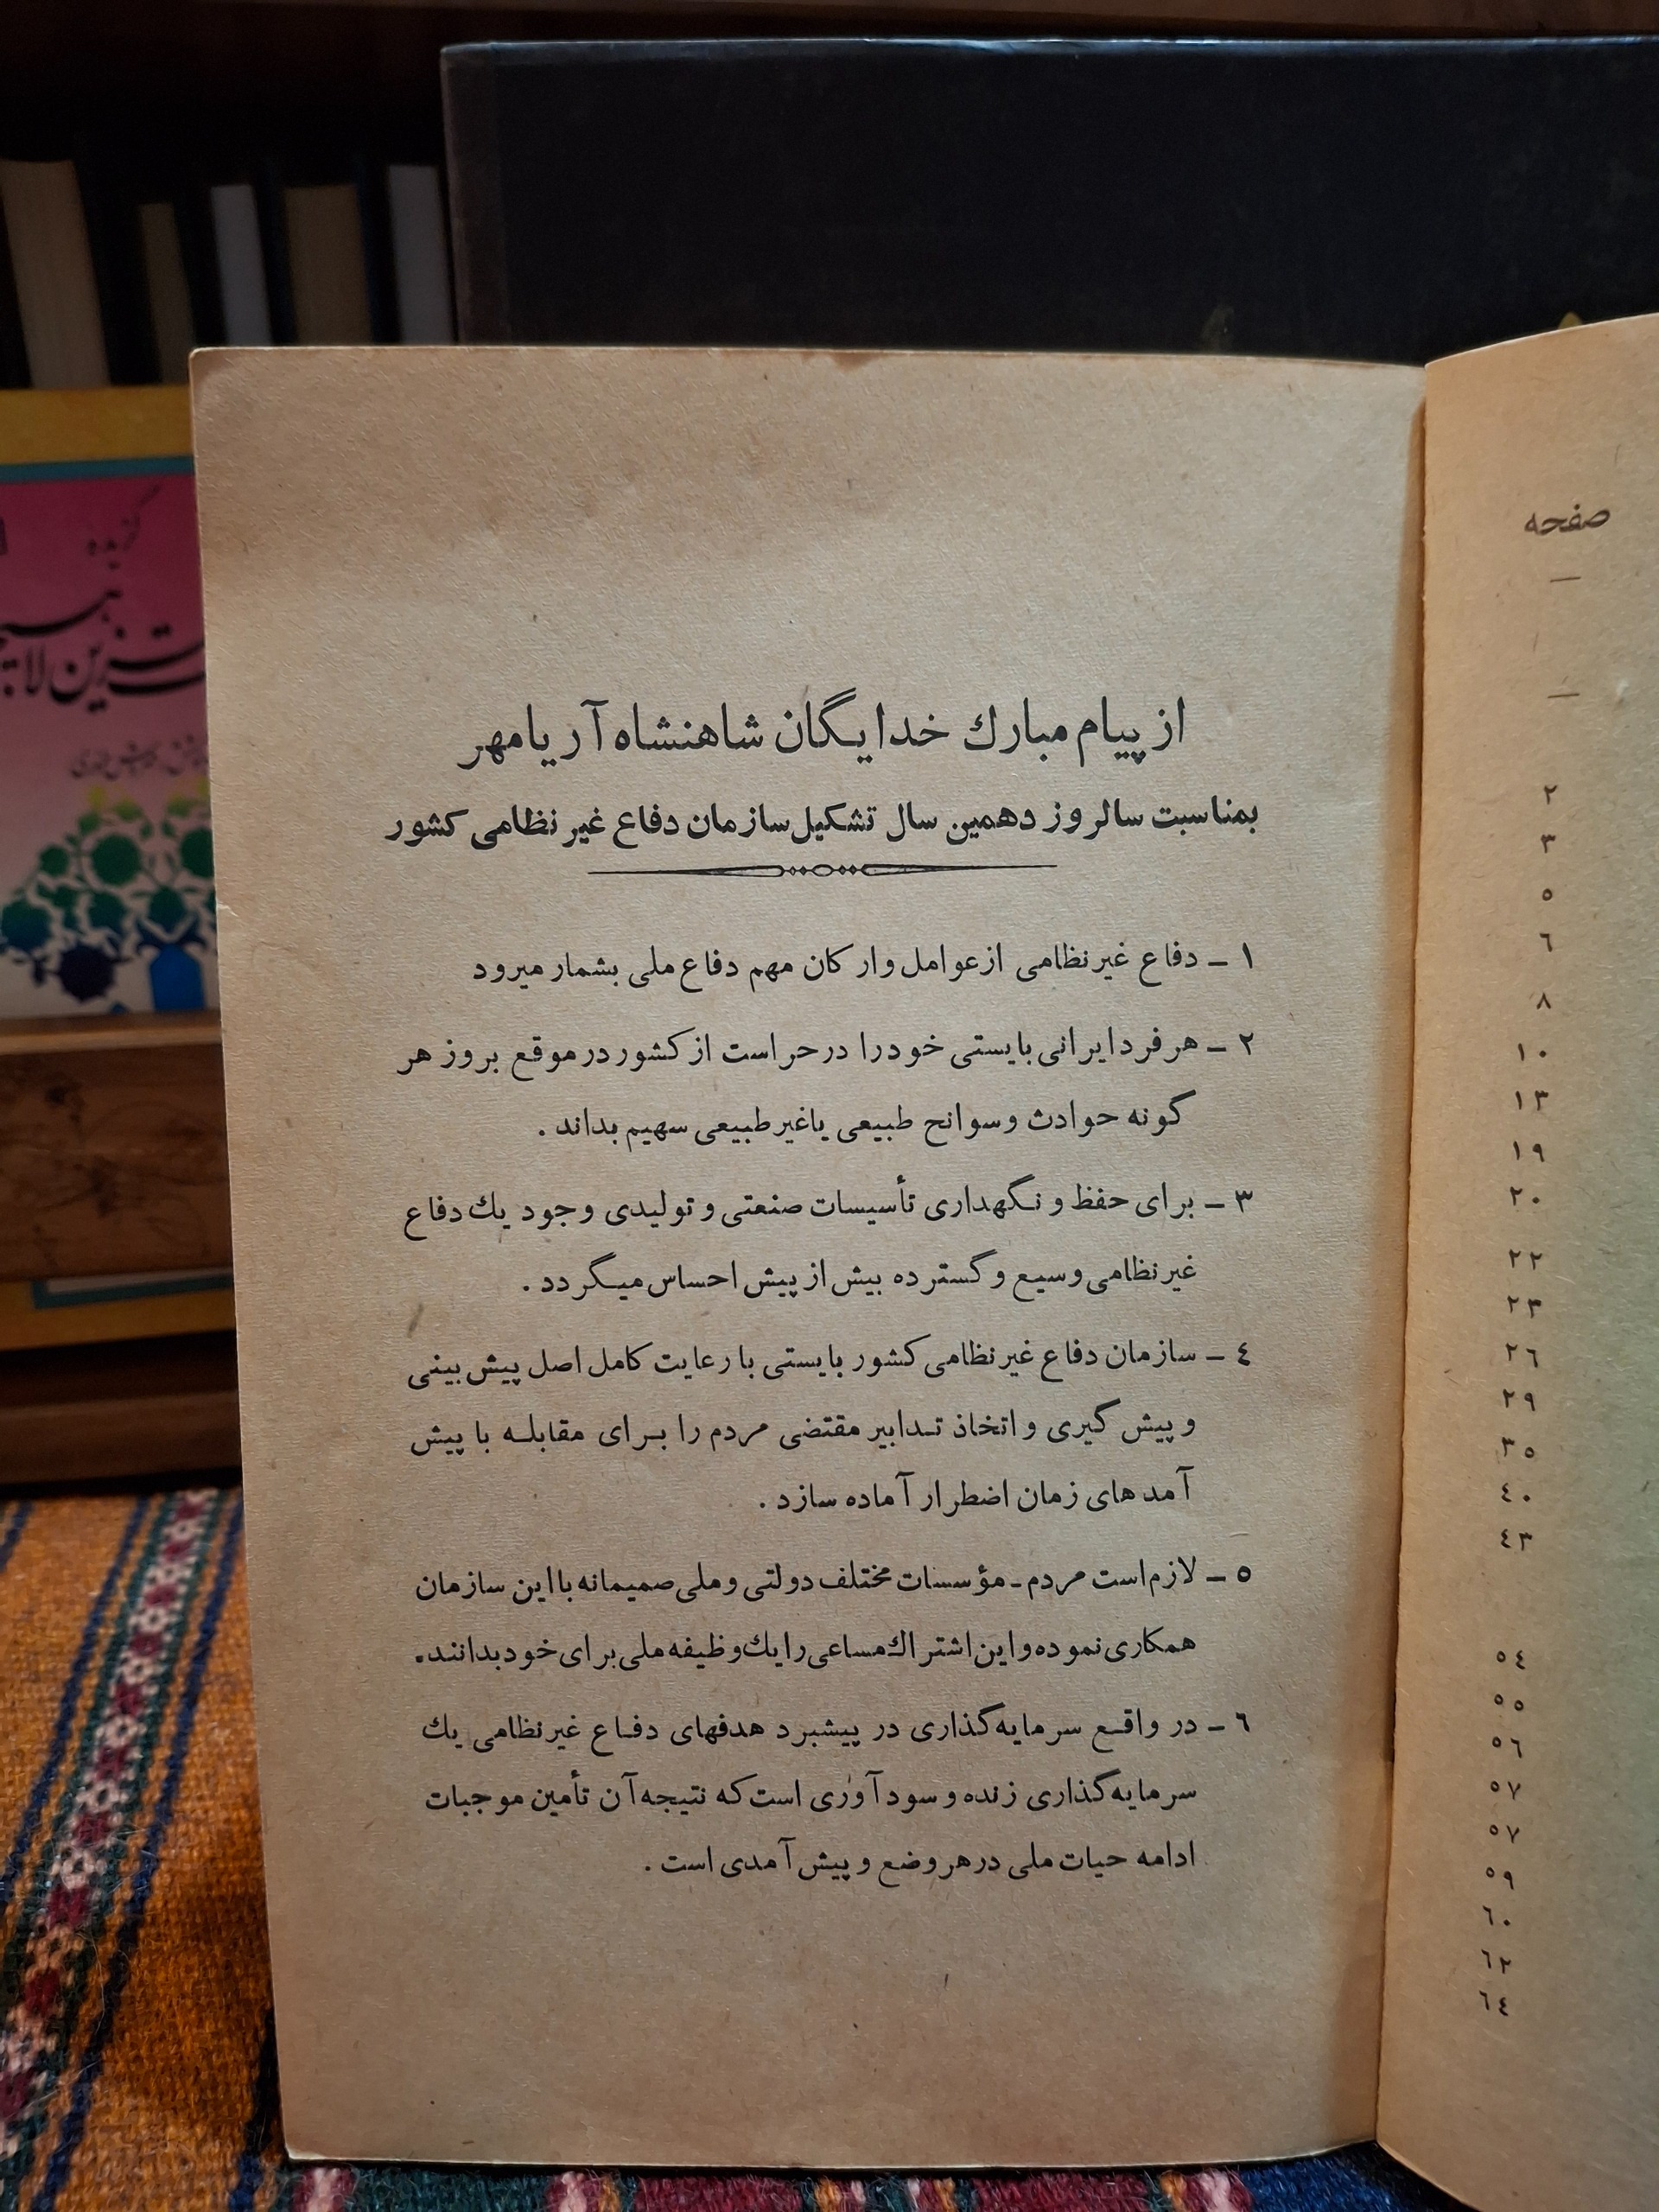 از پیام مبارك خدایگان شاهنشاه آریامهر
بمناسبت سالروز دهمین سال تشکیل سازمان دفاع غیر نظامی کشور
۱ - دفاع غیرنظامی از عوامل و ارکان مهم دفاع ملی بشمار میرود
۲ - هر فرد ایرانی بایستی خود را در حراست از کشور در موقع بروز هر
گونه حوادث و سوانح طبیعی یا غیر طبیعی سهیم بداند .
۳ - برای حفظ و نگهداری تأسیسات صنعتی و تولیدی وجود یك دفاع
غیر نظامی وسیع و گسترده بیش از پیش احساس میگردد .
٤ - سازمان دفاع غیر نظامی کشور بایستی با رعایت کامل اصل پیش بینی
و پیش گیری و اتخاذ تدابیر مقتضی مردم را برای مقابله با پیش
آمدهای زمان اضطرار آماده سازد .
٥ - لازم است مردم - مؤسسات مختلف دولتی و ملی صمیمانه با این سازمان
همکاری نموده و این اشتراك مساعی را یك وظیفه ملی برای خود بدانند .
٦ - در واقع سرمایه گذاری در پیشبرد هدفهای دفاع غیرنظامی یك
سرمایه گذاری زنده و سودآوری است که نتیجه آن تأمین موجبات
ادامه حیات ملی در هر وضع و پیش آمدی است .
صفحه
—
—
۲
۳
٥
٦
۸
۱۰
۱۳
۱۹
۲۰
۲۲
۲۳
۲٦
۲۹
۳٥
٤۰
٤۳
٥٤
٥٥
٥٦
٥۷
٥۷
٥۹
٦۰
٦۲
٦٤
گزیده